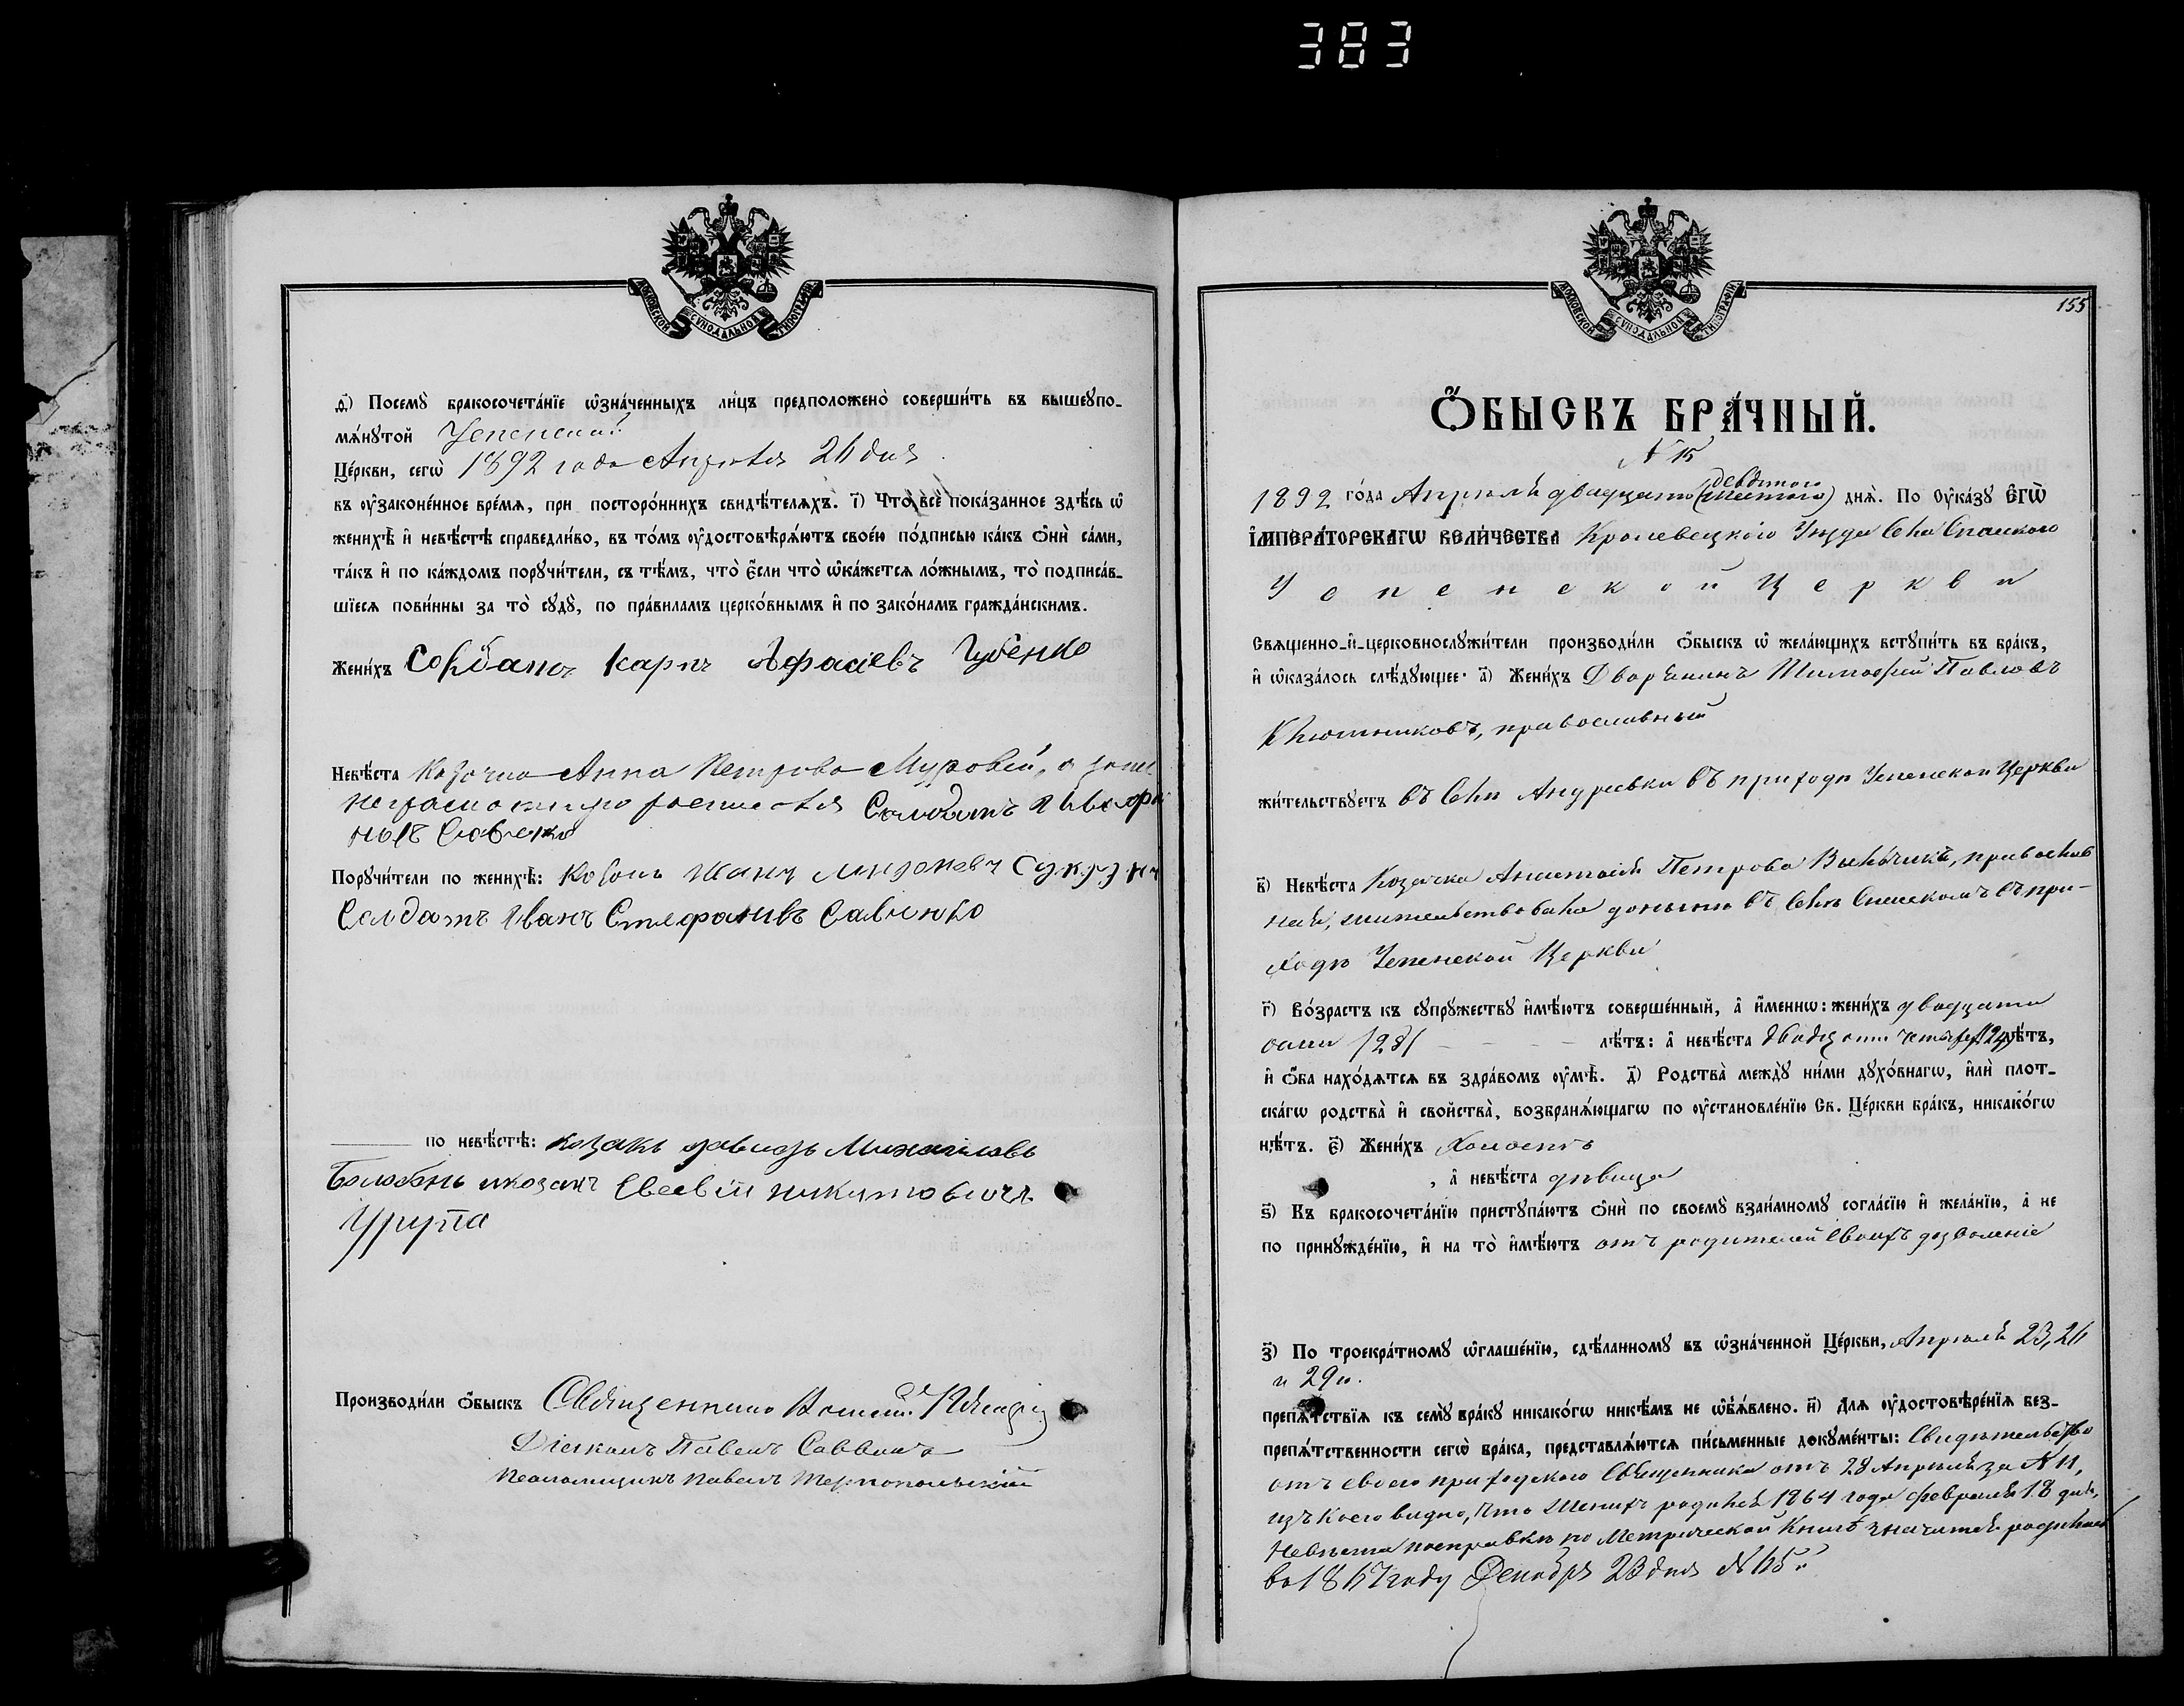 383
МОСКОВСКОЙ СѴНОДАЛЬНОЙ ТИПОГРАФІИ
ѳ҃) Посемꙋ бракосочета́нїе ѡ҆зна́ченныхъ ли́цъ предположено̀ соверши́ть въ вышеꙋпо-
мѧ́нꙋтой Успенской
Це́ркви, сегѡ̀ 1892 года Апреля 26 дня
въ ᲂу҆законе́нное вре́мѧ, при посторо́ннихъ свидѣ́телѧхъ. і҃) Что̀ всѐ пока́занное здѣ́сь ѡ҆
женихѣ̀ и҆ невѣ́стѣ справедли́во, въ то́мъ ᲂу҆достовѣрѧ́ютъ свое́ю по́дписью ка́къ ѻ҆нѝ са́ми,
та́къ и҆ по ка́ждомъ порꙋчи́тели, съ тѣ́мъ, что̀ є҆́сли что̀ ѡ҆ка́жетсѧ ло́жнымъ, то̀ подписа́в-
шїесѧ пови́нны за то̀ сꙋдꙋ̀, по пра́виламъ церко́внымъ и҆ по зако́намъ гражда́нскимъ.
Жени́хъ Солдатъ Карпъ Афасіевъ Губенко
Невѣ́ста Козачка Анна Петрова
Солдатъ
Савенко
Порꙋчи́тели по женихѣ̀: Козакъ
Солдатъ Иванъ Стефанивъ Савченко
по невѣ́стѣ: козакъ Давидъ Михайловъ
Балабонь и козакъ Евсевій никитовичъ
Цурупа
Производи́ли ѻ҆́быскъ Священникъ
Діаконъ Павелъ Саввичъ
Псаломщикъ Павелъ Тернопольскій
155
МОСКОВСКОЙ СѴНОДАЛЬНОЙ ТИПОГРАФІИ
Ѻ҆́БЫСКЪ БРА́ЧНЫЙ.
№ 15
девятого
1892 го́да Апрѣля двадцать (шестого) днѧ̀. По ᲂу҆ка́зꙋ Є҆ГѠ̀
І҆МПЕРА́ТОРСКАГѠ ВЕЛИ́ЧЕСТВА Кролевецкаго Уѣзда Села Спаского
Успенской Церкви
Свѧщенно-и҆-церковнослꙋжи́тели производи́ли ѻ҆́быскъ ѡ҆ жела́ющихъ встꙋпи́ть въ бра́къ,
и҆ ѡ҆каза́лось слѣ́дꙋющее: а҃) Жени́хъ Дворянинъ Тимофей Павловъ
Клюшниковъ, православный
жи́тельствꙋетъ въ Селѣ Андреевки въ приходѣ Успенской Церкви
в҃) Невѣ́ста Козачка Анастасія Петрова православ
ная, жительствовала донынѣ въ Селѣ Спаскомъ въ при-
ходѣ Успенской Церкви
г҃) Во́зрастъ къ сꙋпрꙋ́жествꙋ и҆мѣ́ютъ соверше́нный, а҆ и҆́меннѡ: жени́хъ двадцати
осми /28/ лѣ́тъ: а҆ невѣ́ста двадцати четырех (24) лѣ́тъ,
и҆ ѻ҆́ба нахо́дѧтсѧ въ здра́вомъ ᲂу҆мѣ̀. д҃) Родства̀ междꙋ̀ ни́ми дꙋхо́внагѡ, и҆лѝ плот-
ска́гѡ родства̀ и҆ свойства̀, возбранѧ́ющагѡ по ᲂу҆становле́нїю Св. Це́ркви бра́къ, никако́гѡ
нѣ́тъ. є҃) Жени́хъ Холостъ
, а҆ невѣ́ста дѣвица
ѕ҃) Къ бракосочета́нїю пристꙋпа́ютъ ѻ҆нѝ по своемꙋ̀ взаи́мномꙋ согла́сїю и҆ жела́нїю, а҆ не
по принꙋжде́нїю, и҆ на то̀ и҆мѣ́ютъ отъ родителей своихъ дозволеніе
з҃) По троекра́тномꙋ ѡ҆глаше́нїю, сдѣ́ланномꙋ въ ѡ҆зна́ченной Це́ркви, Апреля 23, 26
и 29го.
препѧ́тствїѧ къ семꙋ̀ бра́кꙋ никако́гѡ никѣ́мъ не ѡ҆б̾ѧ́влено. и҃) Длѧ ᲂу҆достовѣре́нїѧ без-
препѧ́тственности сегѡ̀ бра́ка, представлѧ́ютсѧ пи́сьменные докꙋме́нты: Свидѣтельство
отъ своего приходского Священника отъ 28 Апреля за № 11,
изъ коего видно, что женихъ родился 1864 года февраля 18 дня,
Невѣста по справкѣ по Метрической Книгѣ значится родилась
въ 1867 году Декабря 23 дня № 65.